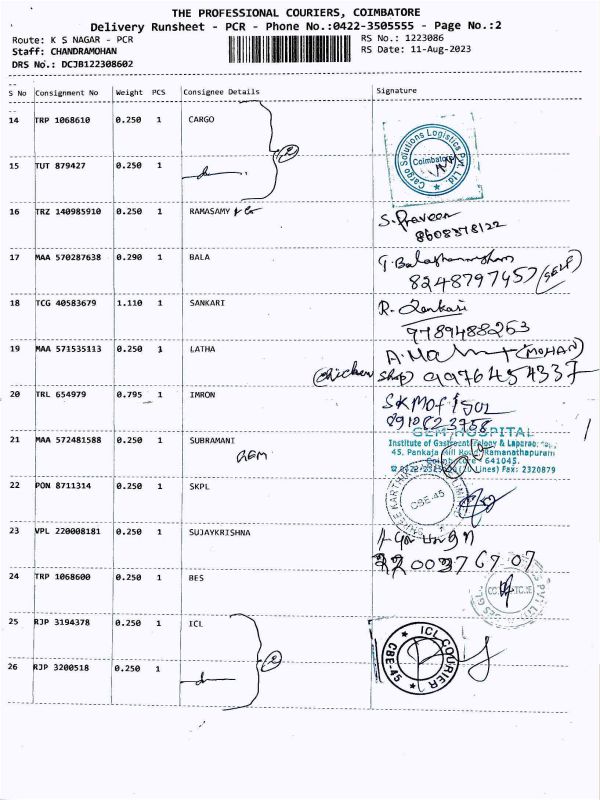 THE PROFESSIONAL COURIERS, COIMBATORE
Delivery Runsheet - PCR - Phone No.:0422-3505555 - Page No.:2
Route: K S NAGAR - PCR RS No.: 1223086
Staff: CHANDRAMOHAN RS Date: 11-Aug-2023
DRS No.: DCJB122308602
S No Consignment No Weight PCS Consignee Details Signature
14 TRP 1068610 0.250 1 CARGO
Cargo Solutions Logistics Pvt. Ltd.
Coimbatore
2
15 TUT 879427 0.250 1
16 TRZ 140985910 0.250 1 RAMASAMY & Co S. Praveen
8608378122
17 MAA 570287638 0.290 1 BALA
8248797457 (Self)
18 TCG 40583679 1.110 1 SANKARI R. Sankari
9789488263
19 MAA 571535113 0.250 1 LATHA (MOHAN)
(Chicken Shop) 9976454337
20 TRL 654979 0.795 1 IMRON
8910823758
21 MAA 572481588 0.250 1 SUBRAMANI
GEM
GEM HOSPITAL
Institute of
45, Pankaja Mill Road, Ramanathapuram
Coimbatore - 641045.
Lines) Fax: 2320879
22 PON 8711314 0.250 1 SKPL
CBE-45
23 VPL 220008181 0.250 1 SUJAYKRISHNA
24 TRP 1068600 0.250 1 BES
25 RJP 3194378 0.250 1 ICL
ICL COURIER
CBE-45
2
26 RJP 3200518 0.250 1